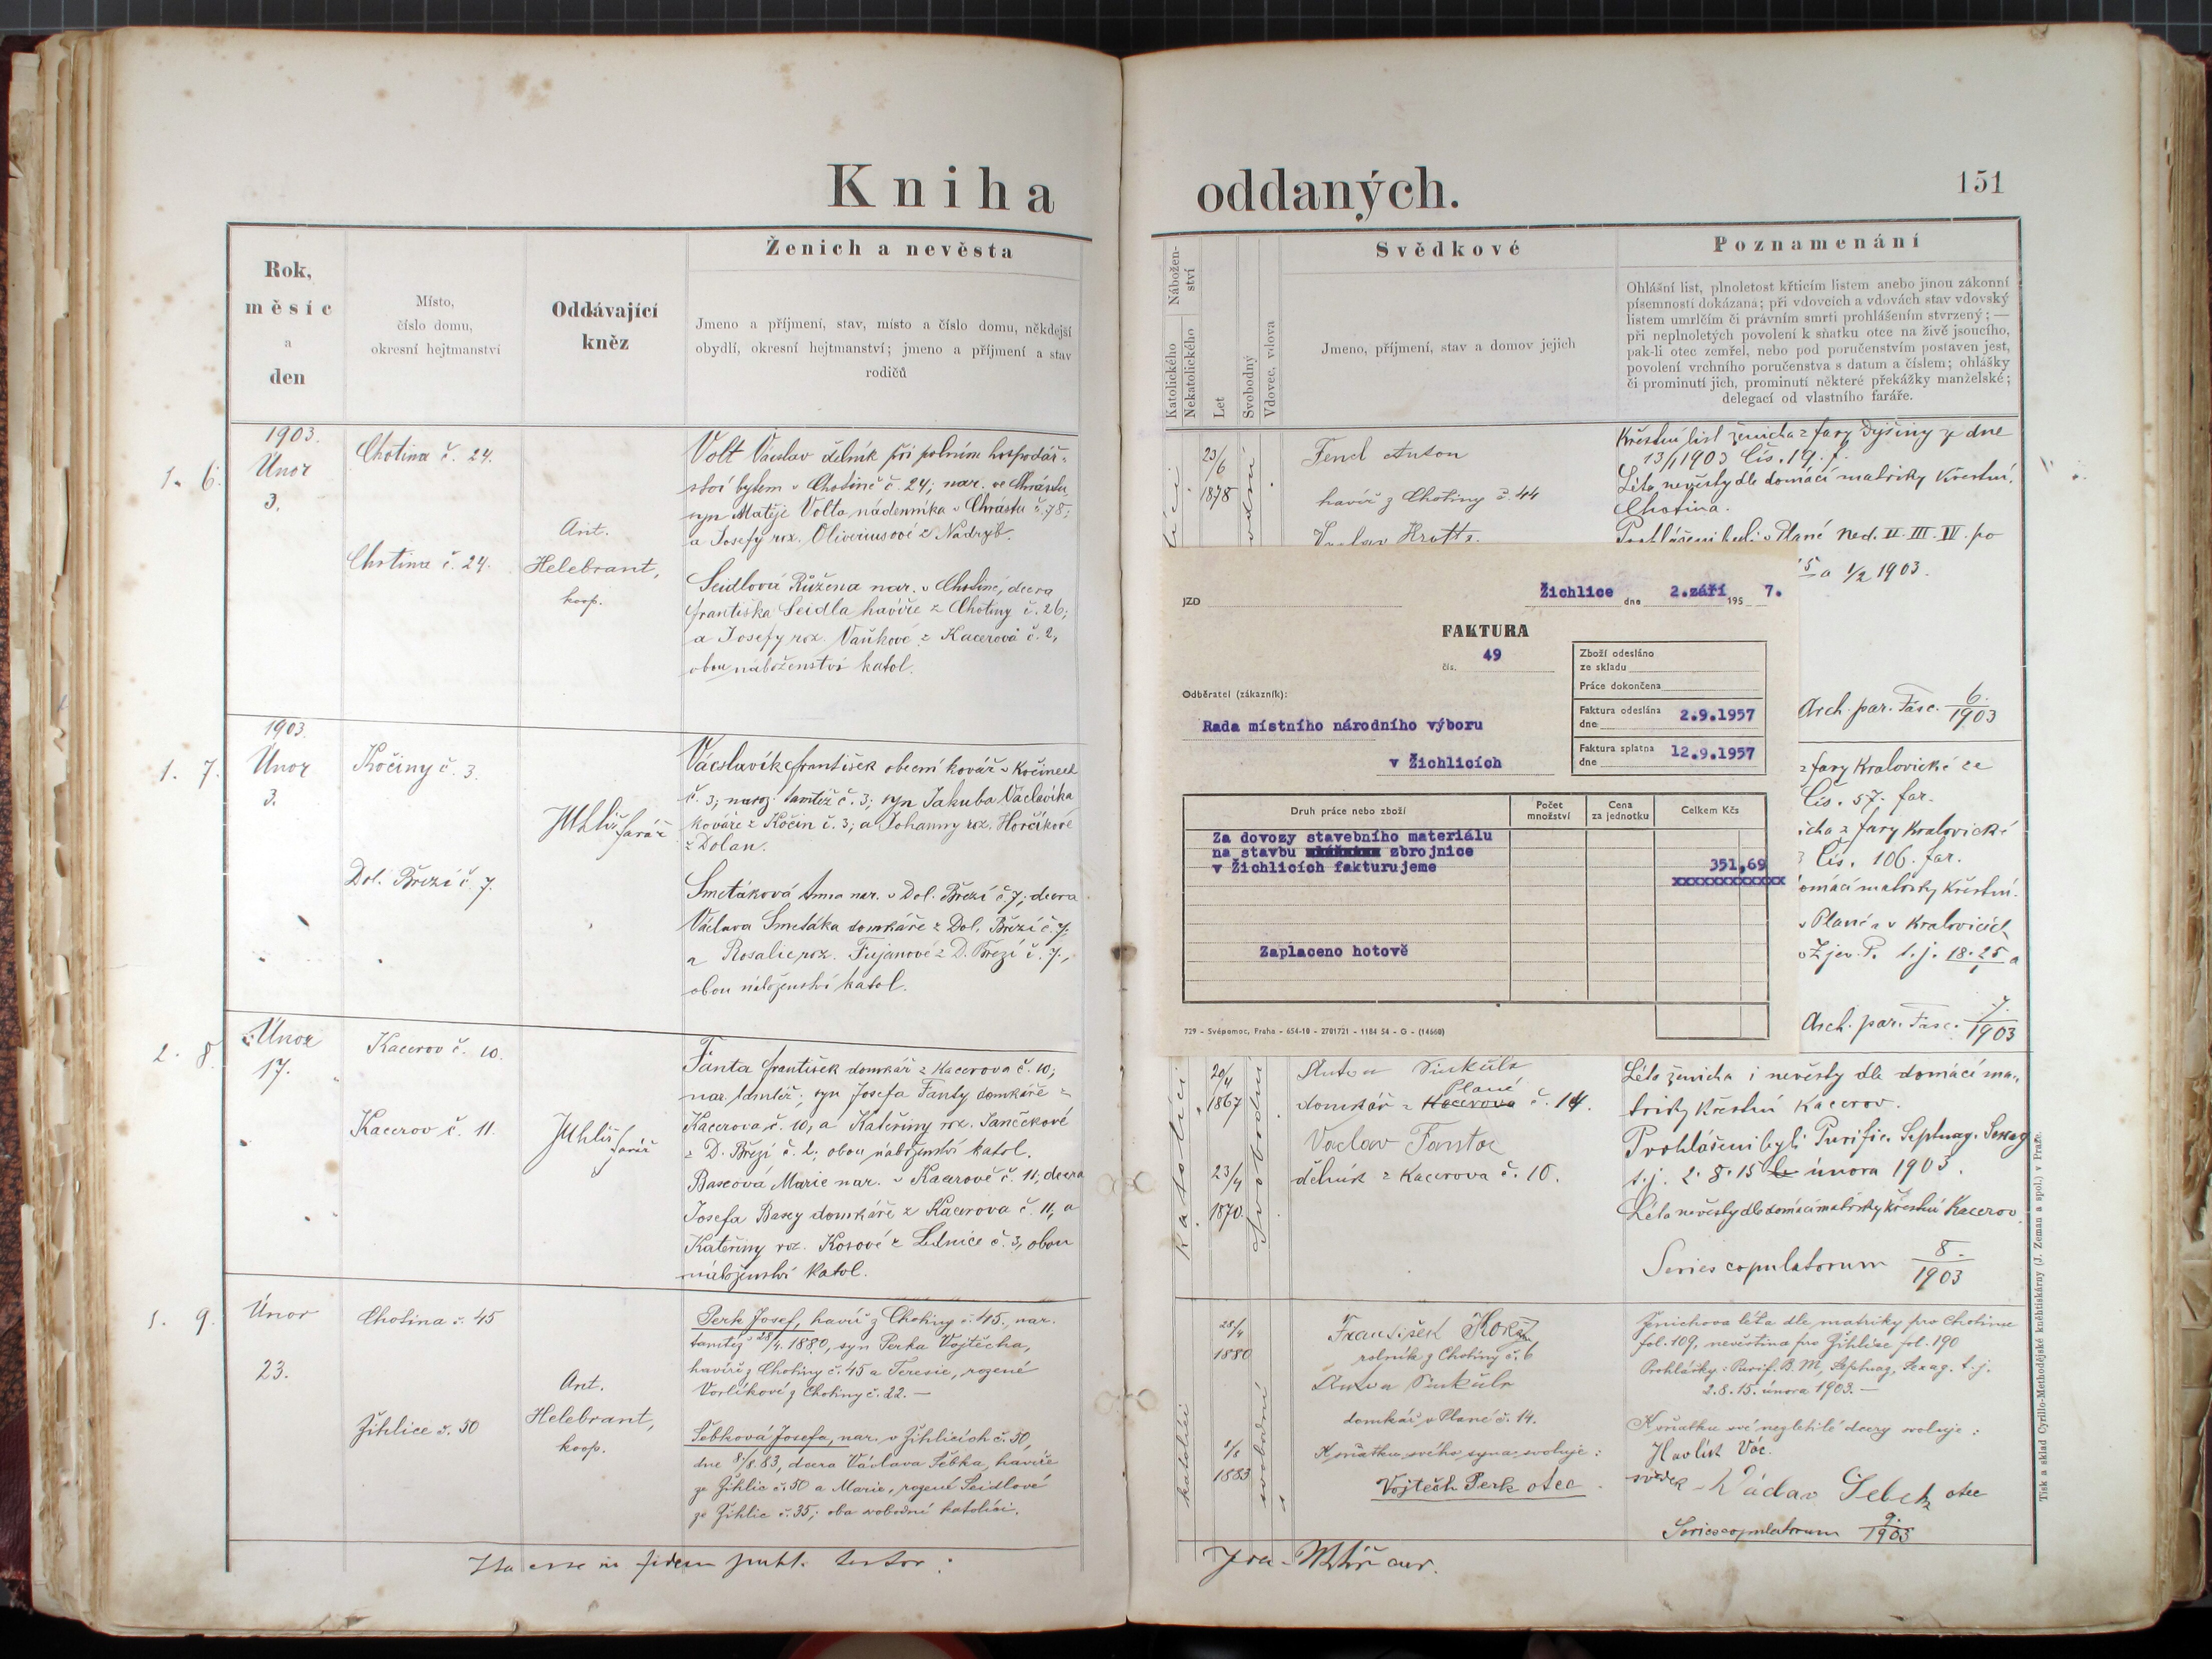 Kniha
Rok,
měsíc
a
den
Místo,
číslo domu,
okresní hejtmanství
Oddávající
kněz
Ženich a nevěsta
Jmeno a příjmení, stav, místo a číslo domu, někdejší
obydlí, okresní hejtmanství; jmeno a příjmení a stav
rodičů
1. 6.
1903.
Únor
3.
Chotina č. 24.
Chotina č. 24.
Ant.
Helebrant,
koop.
Volt Václav dělník při polním hospodář-
ství bytem v Chotině č. 24; nar. ve Chrástu,
syn Matěje Volta nádenníka v Chrástu č. 78;
a Josefy roz. Oliveriusové z Nadryb.
Seidlová Růžena nar. v Chotině, dcera
Františka Seidla havíře z Chotiny č. 26;
a Josefy roz. Vaňkové z Kacerova č. 2,
obou náboženství katol.
1. 7.
1903.
Únor
3.
Kočiny č. 3.
Dol. Březí č. 7.
farář
Václavík František obecní kovář v Kočinech
č. 3; naroz. tamtéž č. 3; syn Jakuba Václavíka
kováře z Kočin č. 3; a Johanny roz. Horčíkové
z Dolan.
Smetáková Anna nar. v Dol. Březí č. 7; dcera
Václava Smetáka domkáře z Dol. Březí č. 7;
a Rosalie roz. Fujanové z D. Březí č. 7,
obou náboženství katol.
2. 8.
Únor
17.
Kacerov č. 10.
Kacerov č. 11.
farář
Fanta František domkář z Kacerova č. 10;
nar. tamtéž; syn Josefa Fanty domkáře z
Kacerova č. 10, a Kateřiny roz. Jančekové
z D. Březí č. 2; obou náboženství katol.
Bascová Marie nar. v Kacerově č. 11; dcera
Josefa Bascy domkáře z Kacerova č. 11, a
Kateřiny roz. Kosové z Lednice č. 3, obou
náboženství katol.
1. 9.
Únor
23.
Chotina č. 45
Žihlice č. 50
Ant.
Helebrant,
koop.
Perk Josef, havíř z Chotiny č. 45., nar.
tamtéž 28/4. 1880, syn Perka Vojtěcha,
havíře z Chotiny č. 45 a Teresie, rozené
Vorlíkové z Chotiny č. 22. —
Šebková Josefa, nar. v Žihlicích č. 50,
dne 8/8 83, dcera Václava Šebka, havíře
ze Žihlic č. 50 a Marie, rozené Seidlové
ze Žihlic č. 35; oba svobodní katolíci.
Ita esse in fidem publ. testor:
oddaných.
151
Nábožen-
ství
Katolického
Nekatolického
Let
Svobodný
Vdovec, vdova
Svědkové
Jmeno, příjmení, stav a domov jejich
Poznamenání
Ohlášní list, plnoletost křticím listem anebo jinou zákonní
písemností dokázaná; při vdovcích a vdovách stav vdovský
listem umrlčím či právním smrti prohlášením stvrzený; —
při neplnoletých povolení k sňatku otce na živě jsoucího,
pak-li otec zemřel, nebo pod poručenstvím postaven jest,
povolení vrchního poručenstva s datum a číslem; ohlášky
či prominutí jich, prominutí některé překážky manželské;
delegací od vlastního faráře.
23/6
1878
Fencl Anton
havíř z Chotiny č. 44
Křestní list ženicha z fary Dýšiny ze dne
13/1 1903 Čís. 19. f.
Léta nevěsty dle domácí matriky křestní
Chotina.
Prohlášeni byli v Plané Ned. II. III. IV. po
a 1/2 1903.
Arch. par. Fasc. 6./1903
JZO
Žichlice dne 2.září 195 7.
FAKTURA
čís. 49
Zboží odesláno
ze skladu
Práce dokončena
Odběratel (zákazník):
Faktura odeslána
dne 2.9.1957
Rada místního národního výboru
Faktura splatna
dne 12.9.1957
v Žichlicích
Druh práce nebo zboží
Počet
množství
Cena
za jednotku
Celkem Kčs
Za dovozy stavebního materiálu
na stavbu zbrojnice
v Žichlicích fakturujeme
351,69
xxxxxxxxxxxxx
Zaplaceno hotově
729 - Svépomoc, Praha - 654-10 - 2701721 - 1184 54 - G - (14660)
z fary Kralovické ze
Čís. 57. far.
z fary Kralovické
Čís. 106. far.
matriky křestní.
v Plané a v Kralovicích
Arch. par. Fasc. 7./1903
katolíci
20/4
1867
23/4
1870.
svobodní
Anton Sinkule
Plané
domkář z Kacerova č. 14.
Václav Fanta
dělník z Kacerova č. 10.
Léta ženicha i nevěsty dle domácí ma-
triky křestní Kacerov.
Prohlášeni byli Purific. Septuag. Sexag
t. j. 2. 8. 15 února 1903.
Léta nevěsty dle domácí matriky křestní Kacerov.
Series copulatorum 8./1903
katolíci
28/4
1880
1883
svobodní
František
rolník z Chotiny č. 6
Anton Sinkule
domkář v Plané č. 14.
K sňatku svého syna svoluje:
Vojtěch Perk otec
Ženichova léta dle matriky pro Chotinu
fol. 109, nevěstina pro Žihlice fol. 190
Prohlášky: Purif. B. M, Septuag, Sexag. t. j.
2. 8. 15. února 1903. —
K sňatku své nezletilé dcery svoluje:
Havlík Vác.
svědek
Václav Šebek otec
Series copulatorum 9./1903
Tisk a sklad Cyrillo-Methodějské knihtiskárny (J. Zeman a spol.) v Praze.